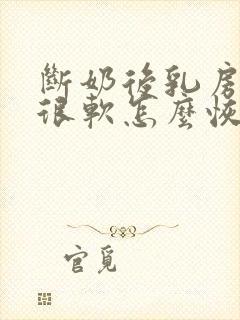 斷奶後乳房
很軟怎麼恢
官覓